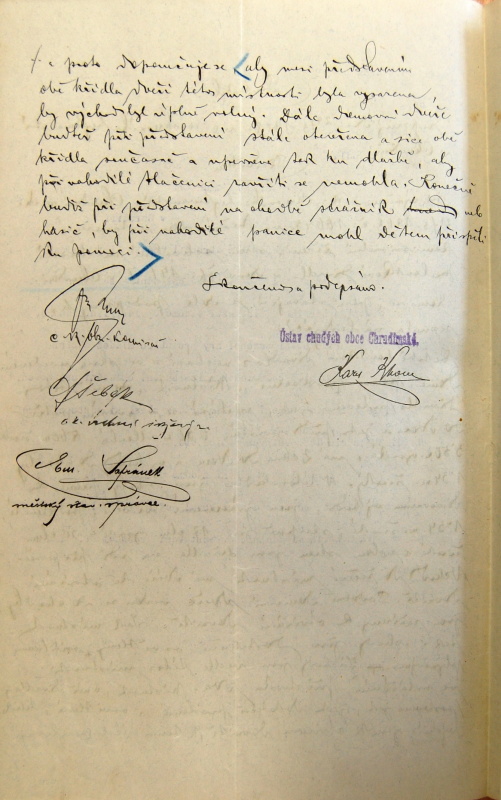 a proto doporučuje se aby mezi představením
obě křídla dveří této místnosti byla vysazena,
by východ byl úplně volný. Dále domovní dveře
buďtež při představení stále otevřena a sice obě
křídla současně a upevněna tak ku dlažbě, aby
při nahodilé tlačenici zavříti se nemohla. Konečně
budiž při představení na chodbě strážník neb
hasič, by při nahodilé panice mohl dětem přispěti
ku pomoci.
Skončeno a podepsáno.
Ústav chudých obce Chrudimské.
c. k. obv. komisař
Šebek
c. k. inženýr
Em. Šafránek
městský stav. správce.